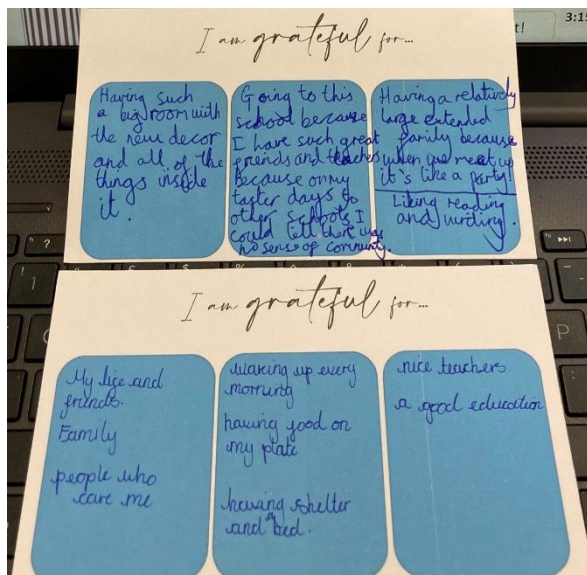 3:15
t!
I am grateful for...
Having such
a big room with
the new decor
and all of the
things inside
it.
Going to this
school because
I have such great
friends and teaches
because on my
taster days to
other schools I
could tell there was
no sense of community.
Having a relatively
large extended
family because
when we meet up
it's like a party!
Liking reading
and writing.
I am grateful for...
My life and
friends.
Family
people who
care me
waking up every
morning
having food on
my plate
having shelter
and a bed.
nice teachers
a good education